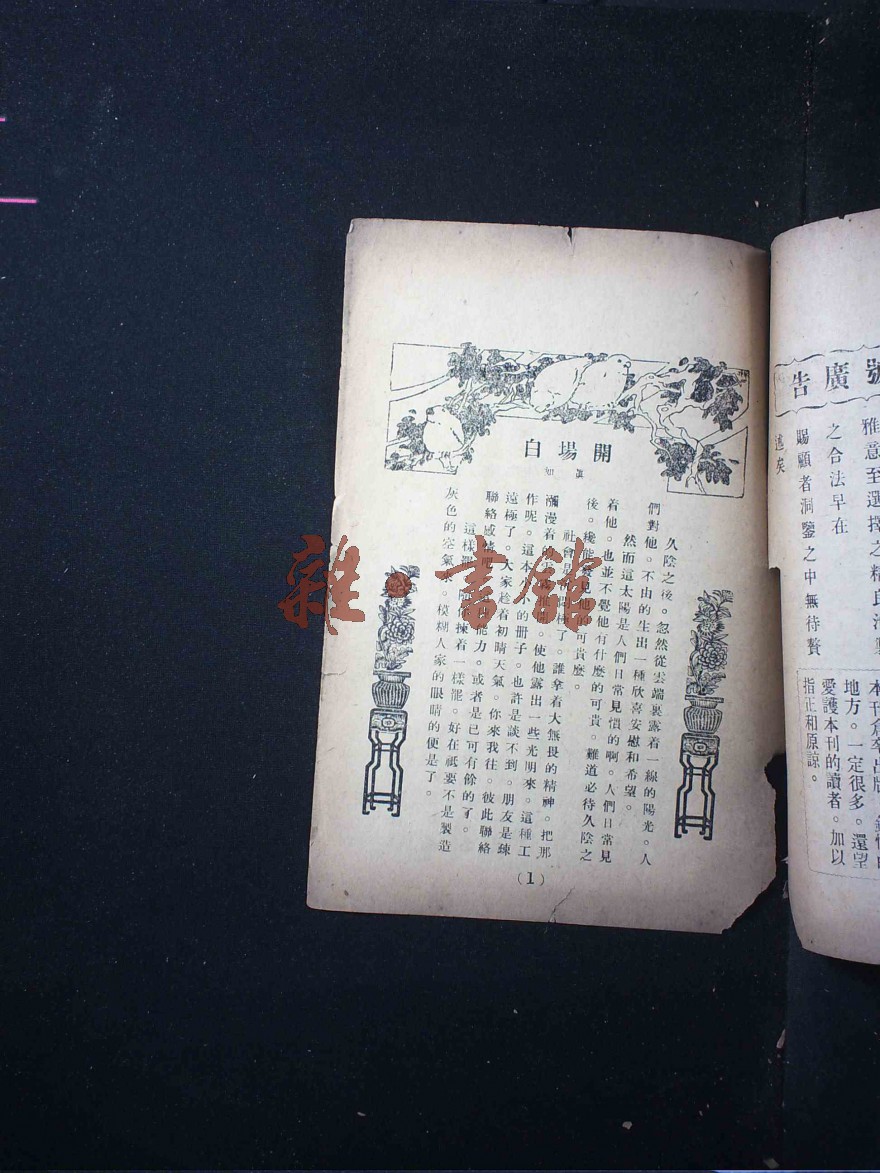 開場白
知眞
久陰之後。忽然從雲端裏露着一線的陽光。人
們對他。不由的生出一種欣喜安慰和希望。
然而這太陽是人們日常見慣的啊。人們日常見
着他。也並不覺他有什麼的可貴。難道必待久陰之
後。纔能發見他的可貴麼。
社會是 極了。誰拿着大無畏的精神。把那
瀰漫着的 。使他露出一些光明來。這種工
作呢。這本 小的冊子。也許是談不到。朋友是疎
遠極了。大家趁着初晴天氣。你來我往。彼此聯絡
聯絡感情 能力。或者是已可有餘的了。
這樣 揀着一樣罷。好在祇要不是製造
灰色的空氣。模糊人家的眼睛的便是了。
(1)
雜·書館
號廣告
雅意至選擇之精良
之合法早在
賜顧者洞鑒之中無待贅
述矣
地方。一定很多。還望
愛護本刊的讀者。加以
指正和原諒。